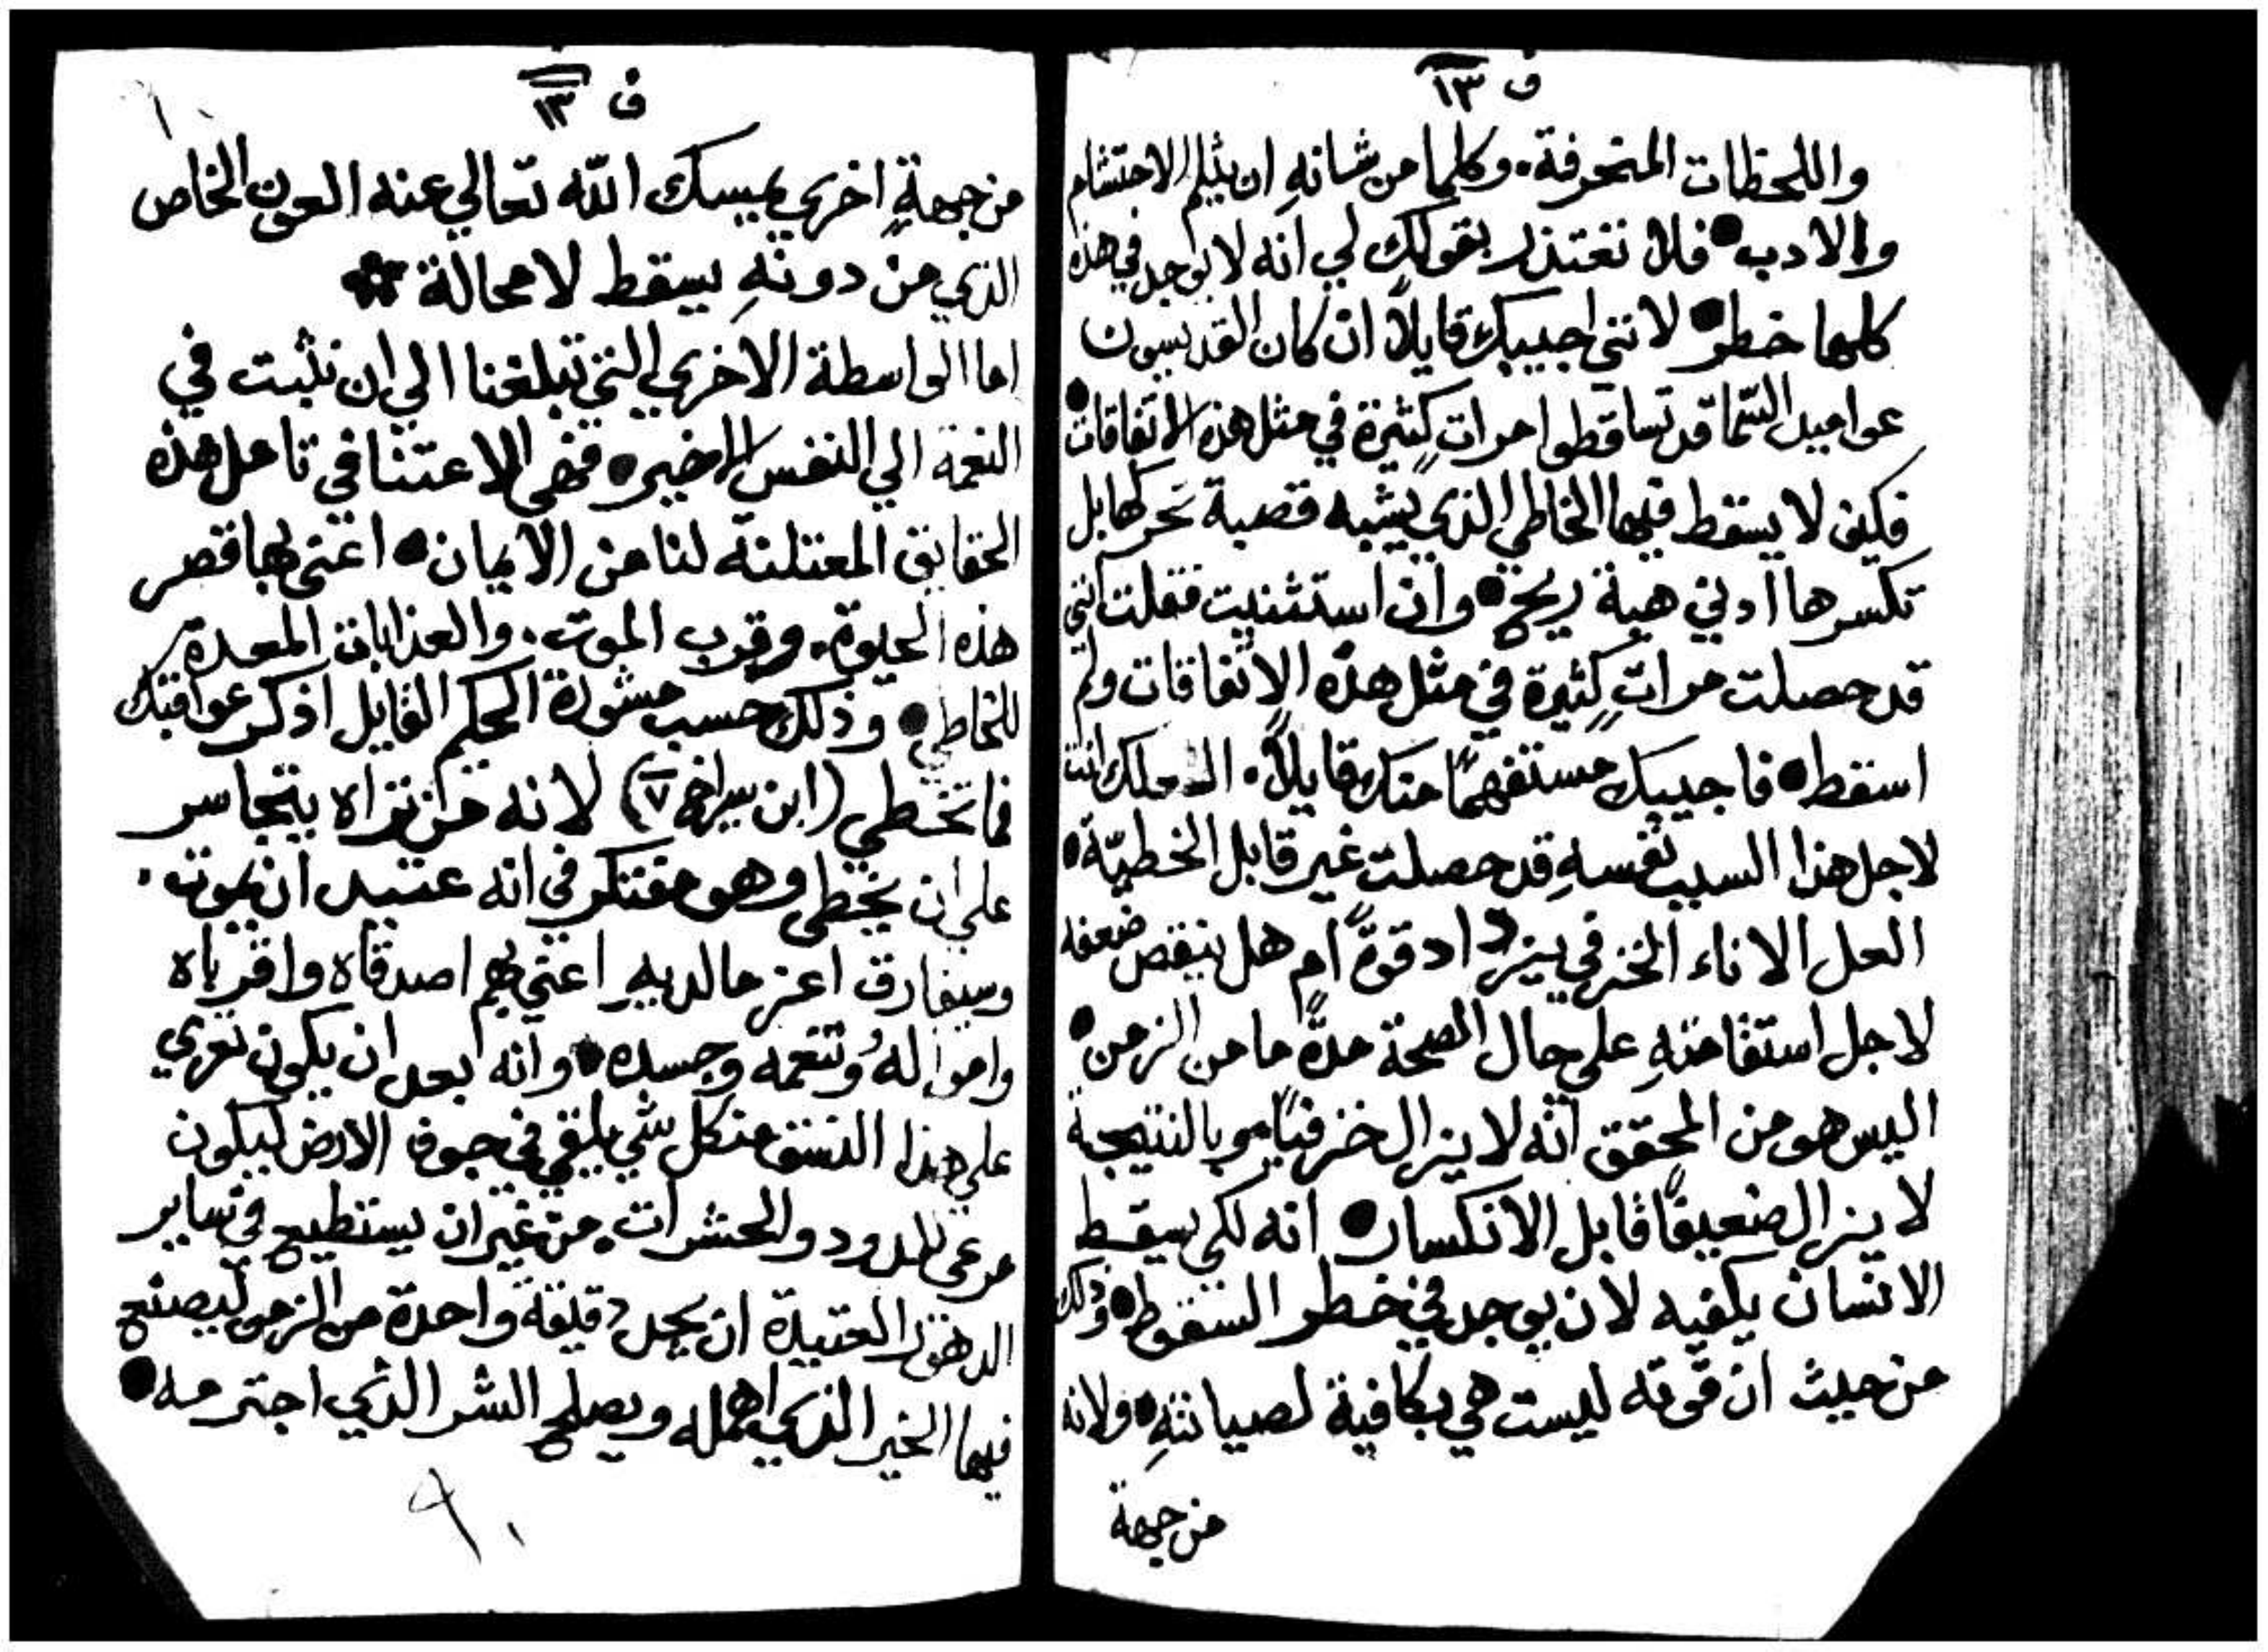 ف ١٣
واللحظات المنحرفة. وكلما من شانهِ ان يثلم الاحتشام
والادب • فلا تعتذر بقولك لي انه لا يوجد في هذه
كلها خطر • لانني اجيبك قايلاً ان كان القديسون
عواميد السما قد تساقطوا مراتٍ كثيرة في مثل هذه الاتفاقات •
فكيف لا يسقط فيها الخاطي الذي يشبه قصبة تحركها بل
تكسرها ادني هبة ريح • وان استثنيت فقلت انني
قد حصلت مراتٍ كثيرة في مثل هذه الاتفاقات ولم
اسقط • فاجيبك مستفهمًا منك قايلاً. العلك انت
لاجل هذا السبب نفسهِ قد حصلت غير قابل الخطيّة •
العل الاناء الخزفي يزداد قوةً ام هل ينقص ضعفه
لاجل استقامتهِ علي حال الصحة مدةً ما من الزمن •
اليس هو من المحقق انه لا يزال خزفيًا • وبالنتيجة
لا يزال ضعيفًا قابل الانكسار • انه لكي يسقط
الانسان يكفيه لان يوجد في خطر السقوط • وذلك
من حيث ان قوته ليست هي بكافية لصيانتهِ • ولانه
من جهة
ف ١٣
من جهةٍ اخري يمسك الله تعالي عنه العون الخاص
الذي من دونهِ يسقط لا محالة *
اما الواسطة الاخري التي تبلغنا الي ان نثبت في
النعمة الي النفس الاخير • فهي الاعتنا في تامل هذه
الحقايق المعتلنة لنا من الايمان • اعني بها قصر
هذه الحيوة. وقرب الموت. والعذابات المعدة
للخاطي • وذلك حسب مشورة الحكيم القايل اذكر عواقبك
فما تخطي (ابن سيراخ ٧) لانه من تراه يتجاسر
علي ان يخطي وهو مفتكر في انه عتيد ان يموت.
وسيفارق اعز ما لديهِ اعني بهم اصدقاه واقرباه
وامواله وتنعمه وجسده • وانه بعد ان يكون تعري
علي هذا النسق من كل شي يلقي في جوف الارض ليكون
مرعي للدود والحشرات. من غير ان يستطيع في ساير
الدهور العتيدة ان يجد دقيقة واحدة من الزمن ليصنع
فيها الخير الذي اهمله ويصلح الشر الذي اجترمه •